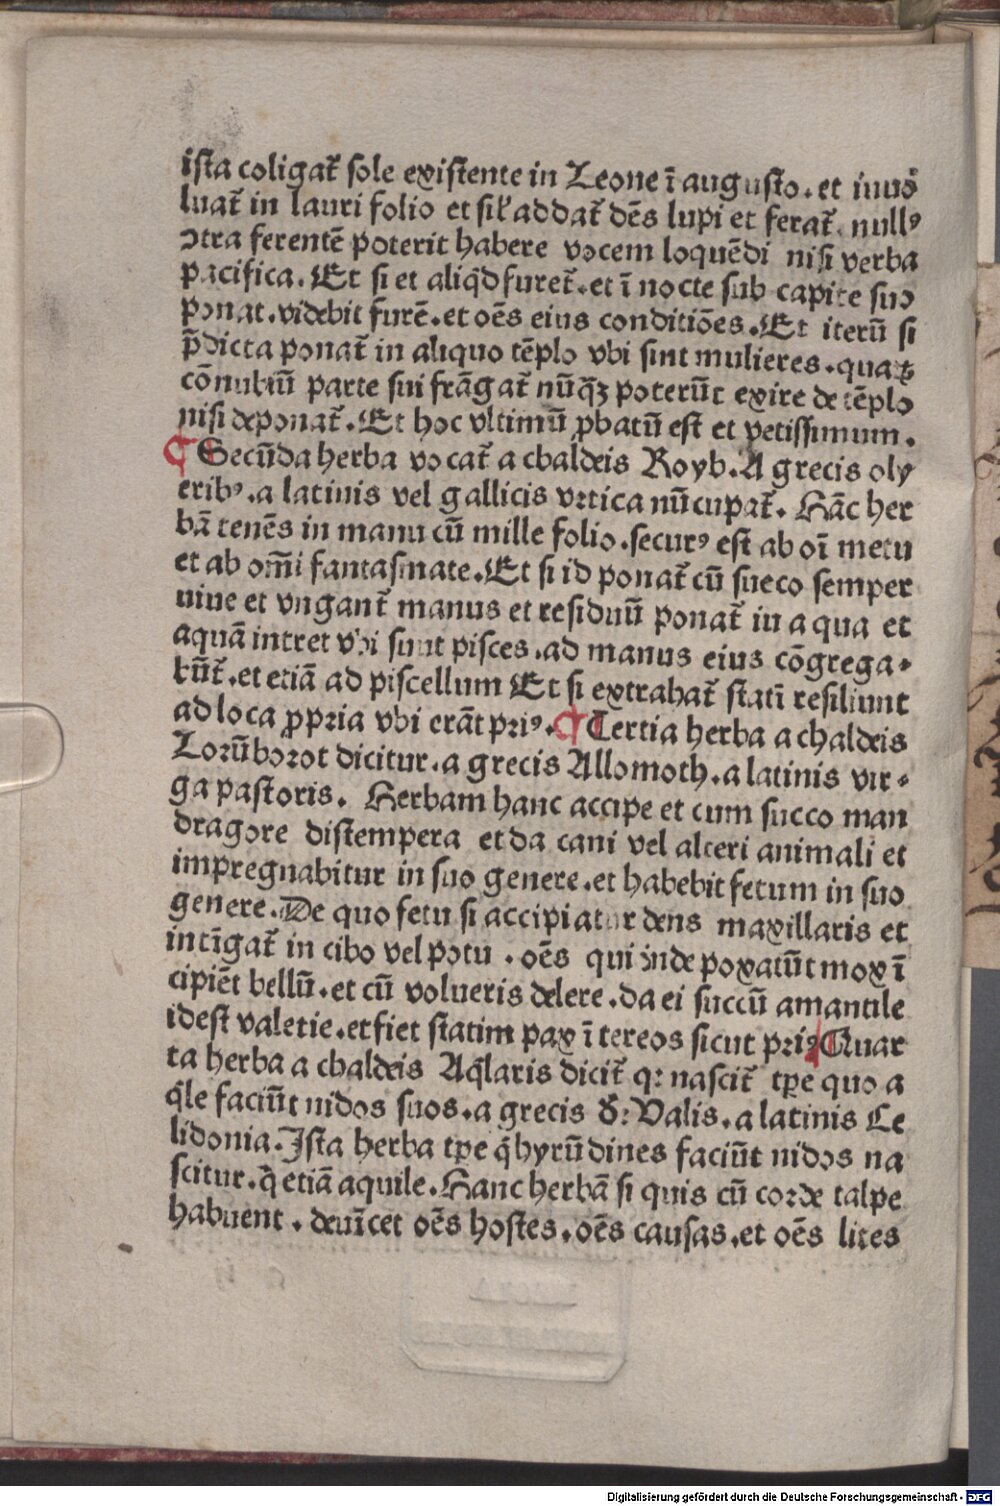 ista coligat᷑ sole existente in Leone ī augusto. et inuo
luat᷑ in lauri folio et sil᷑ addat᷑ dēs lupi et ferat᷑. nullꝰ
ↄtra ferentē poterit habere vocem loquēdi nisi verba
pacifica. Et si et aliqͥd furet᷑. et ī nocte sub capite suo
ponat. videbit furē. et oēs eius conditiōes. Et iterū si
p̄dicta ponat᷑ in aliquo tēplo vbi sint mulieres. quaꝝ
cōnubiū parte sui frāgat᷑ nūqꝫ poterūt exire de tēplo
nisi deponat᷑. Et hoc vltimū ꝓbatū est et verissimum.
¶ Secūda herba vocat᷑ a chaldeis Royb. A grecis oly
eribꝰ. a latinis vel gallicis vrtica nūcupat᷑. Hāc her
bā tenēs in manu cū mille folio. securꝰ est ab oī metu
et ab om̄i fantasmate. Et si id ponat᷑ cū sueco semper
uiue et vngant᷑ manus et residuū ponat᷑ in aqua et
aquā intret vbi sunt pisces. ad manus eius cōgrega-
būt᷑. et etiā ad piscellum Et si extrahat᷑ statī resiliunt
ad loca ꝓpria vbi erāt priꝰ. ¶ Tertia herba a chaldeis
Lorūborot dicitur. a grecis Allomoth. a latinis vir-
ga pastoris. Herbam hanc accipe et cum succo man
dragore distempera et da cani vel alteri animali et
impregnabitur in suo genere. et habebit fetum in suo
genere. De quo fetu si accipiatur dens maxillaris et
intīgat᷑ in cibo vel potu. oēs qui inde poxatūt mox ī
cipiēt bellū. et cū volueris delere. da ei succū amantile
idest valetie. et fiet statim pax ī tereos sicut priꝰ ¶ Quar
ta herba a chaldeis Aqͥlaris dicit᷑ qꝛ nascit᷑ tp̄e quo a
qͥle faciūt nidos suos. a grecis dꝛ Valis. a latinis Ce
lidonia. Ista herba tp̄e qͦ hyrūdines faciūt nidos na
scitur. q̄ etiā aquile. Hanc herbā si quis cū corde talpe
habuent. deuīcet oēs hostes. oēs causas. et oēs lites
Digitalisierung gefördert durch die Deutsche Forschungsgemeinschaft - DFG